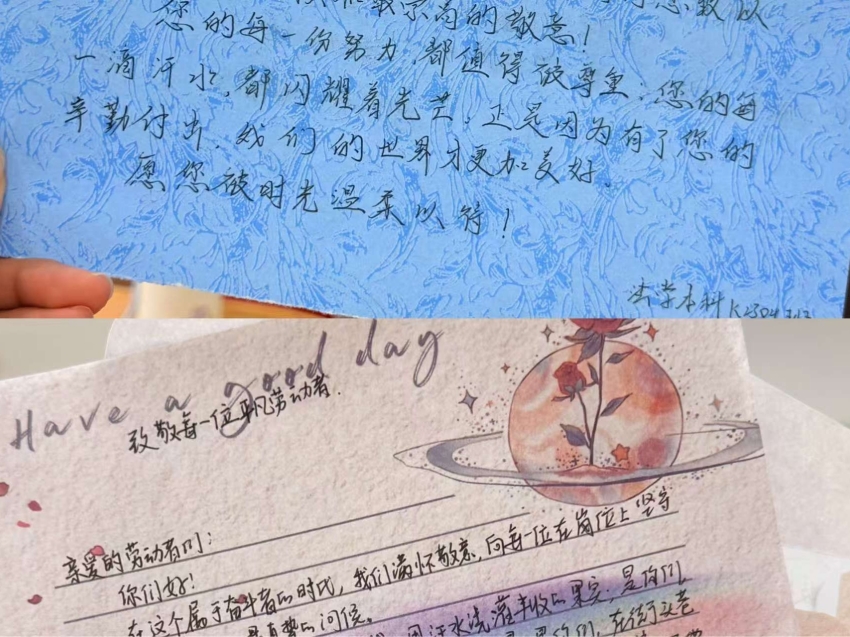 最崇高的敬意!
您的每一份努力,都值得被尊重;您的每
一滴汗水,都闪耀着光芒。正是因为有了您的
辛勤付出,我们的世界才更加美好。
愿您被时光温柔以待!
法学本科K2304
Have a good day
致敬每一位平凡劳动者.
亲爱的劳动者们:
你们好!
在这个属于奋斗者的时代,我们满怀敬意,向每一位在岗位上坚守
的问候。
用汗水浇灌丰收的果实;是你们
你们,在街头巷